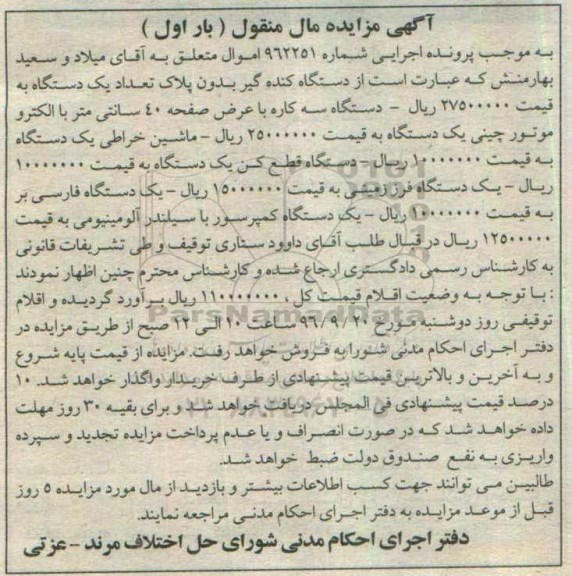 آگهی مزایده مال منقول ( بار اول )
به موجب پرونده اجرایی شماره ۹۶۲۲۵۱ اموال متعلق به آقای میلاد و سعید
بهارمنش که عبارت است از دستگاه کنده گیر بدون پلاک تعداد یک دستگاه به
قیمت ۲۷۵۰۰۰۰۰ ریال - دستگاه سه کاره با عرض صفحه ۴۰ سانتی متر با الکترو
موتور چینی یک دستگاه به قیمت ۲۵۰۰۰۰۰۰ ریال - ماشین خراطی یک دستگاه
به قیمت ۱۰۰۰۰۰۰۰ ریال - دستگاه قطع کن یک دستگاه به قیمت ۱۰۰۰۰۰۰۰
ریال - یک دستگاه فرز زمینی به قیمت ۱۵۰۰۰۰۰۰ ریال - یک دستگاه فارسی بر
به قیمت ۱۰۰۰۰۰۰۰ ریال - یک دستگاه کمپرسور با سیلندر آلومینیومی به قیمت
۱۲۵۰۰۰۰۰ ریال در قبال طلب آقای داوود ستاری توقیف و طی تشریفات قانونی
به کارشناس رسمی دادگستری ارجاع شده و کارشناس محترم چنین اظهار نمودند
: با توجه به وضعیت اقلام قیمت کل ، ۱۱۰۰۰۰۰۰۰ ریال برآورد گردیده و اقلام
توقیفی روز دوشنبه مورخ ۹۶/۹/۲۰ ساعت ۱۰ الی ۱۲ صبح از طریق مزایده در
دفتر اجرای احکام مدنی شورا به فروش خواهد رفت. مزایده از قیمت پایه شروع
و به آخرین و بالاترین قیمت پیشنهادی از طرف خریدار واگذار خواهد شد. ۱۰
درصد قیمت پیشنهادی فی المجلس دریافت خواهد شد و برای بقیه ۳۰ روز مهلت
داده خواهد شد که در صورت انصراف و یا عدم پرداخت مزایده تجدید و سپرده
واریزی به نفع صندوق دولت ضبط خواهد شد.
طالبین می توانند جهت کسب اطلاعات بیشتر و بازدید از مال مورد مزایده ۵ روز
قبل از موعد مزایده به دفتر اجرای احکام مدنی مراجعه نمایند.
دفتر اجرای احکام مدنی شورای حل اختلاف مرند - عزتی
ParsNamadData